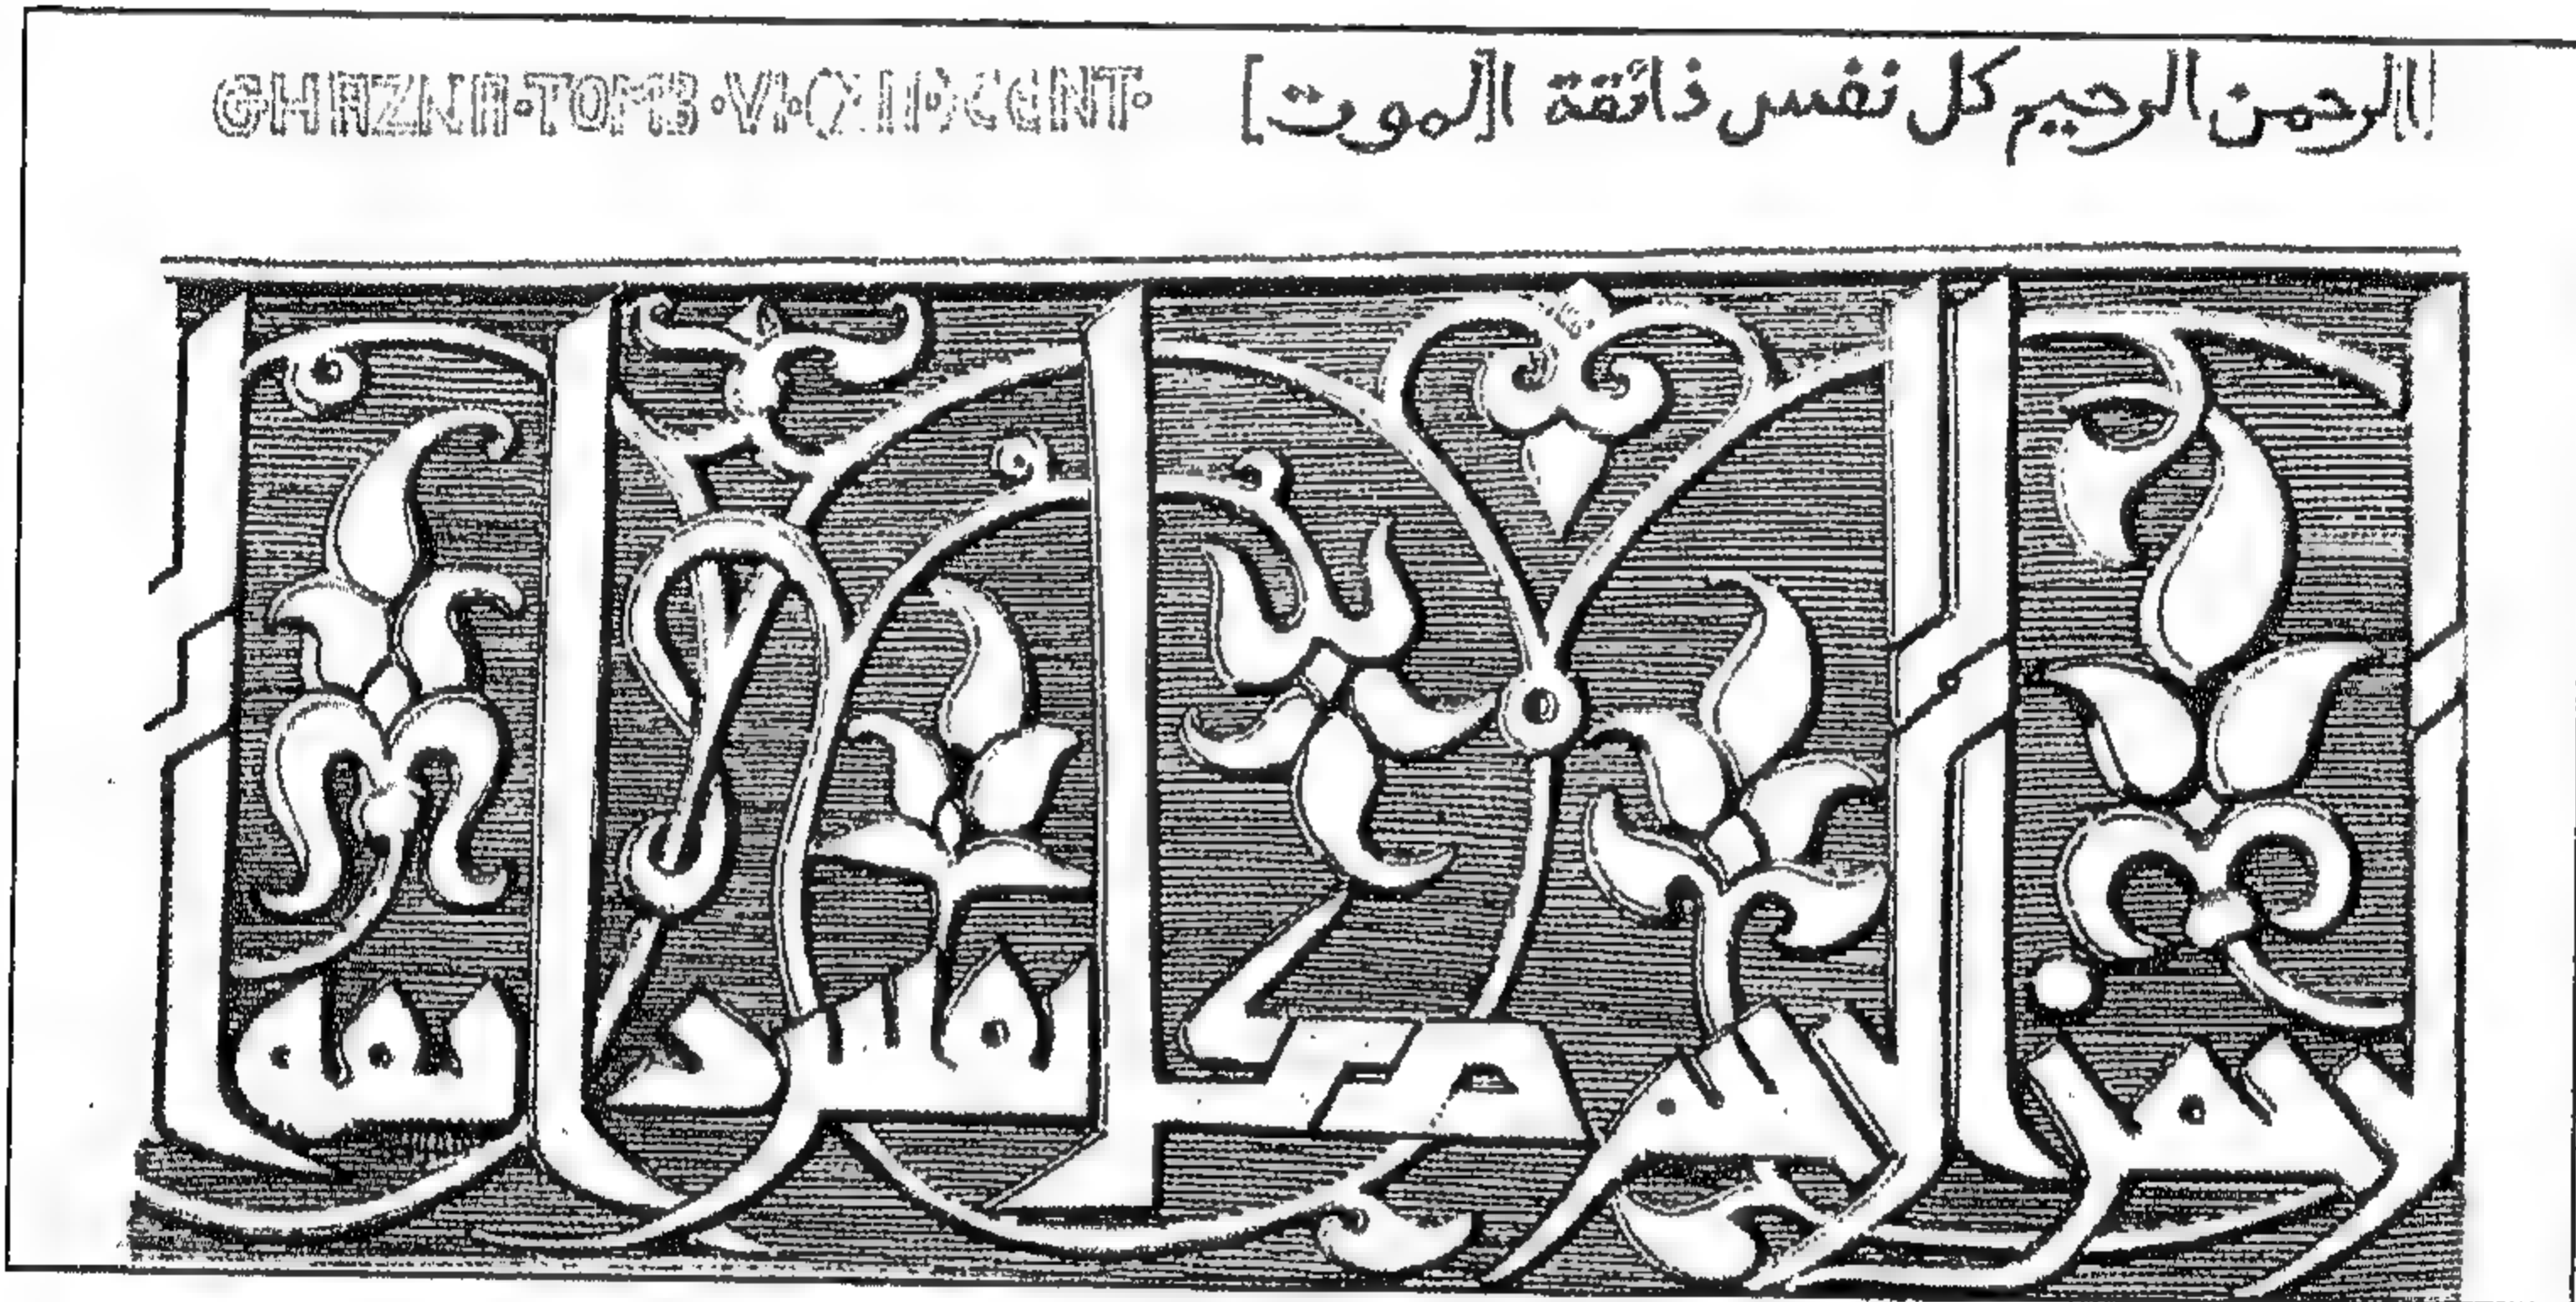 GHAZNA·TOMB·VI·(XII)·CENT· ا]لرحمن الرحيم كل نفس ذائقة ا[لموت]